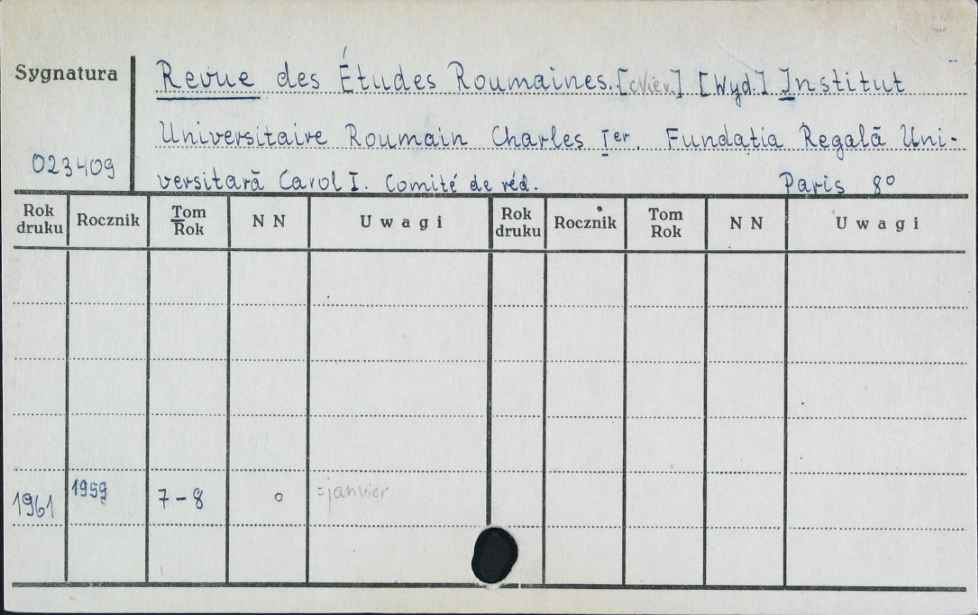 Sygnatura
Revue des Études Roumaines. [Nier.] [Wyd.] Institut
Universitaire Roumain Charles Ier. Fundaţia Regală Uni-
023409
versitară Carol I. Comité de réd. Paris 8°
Rok druku Rocznik Tom Rok N N Uwagi Rok druku Rocznik Tom Rok N N Uwagi
1961 1959 7-8 ° =janvier